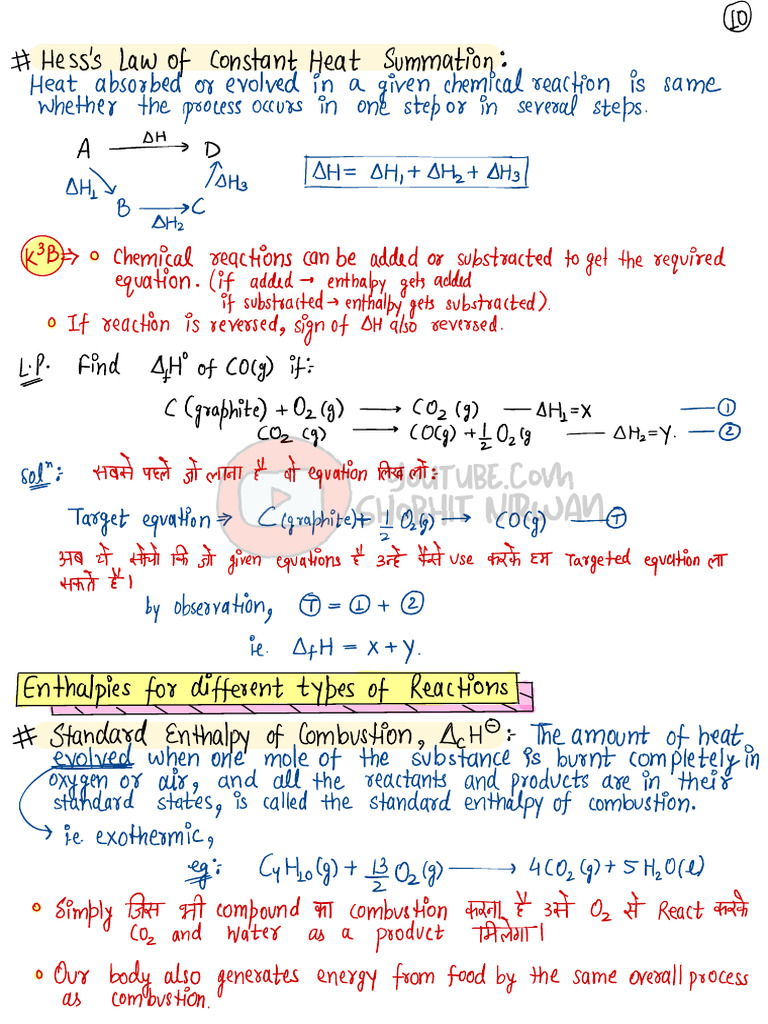 10
# Hess's Law of Constant Heat Summation:
Heat absorbed or evolved in a given chemical reaction is same
whether the process occurs in one step or in several steps.
A ΔH → D
ΔH₁ ΔH₃
B → C
ΔH₂
ΔH = ΔH₁ + ΔH₂ + ΔH₃
K³B ⇒ • Chemical reactions can be added or substracted to get the required
equation. (if added → enthalpy gets added
if substracted → enthalpy gets substracted).
• If reaction is reversed, sign of ΔH also reversed.
L.P. Find ΔfH° of CO(g) if:-
C (graphite) + O₂(g) → CO₂(g) — ΔH₁=X — ①
CO₂ (g) → CO(g) + 1/2 O₂(g — ΔH₂=Y. — ②
Solⁿ: सबसे पहले जो लाना है वो equation लिख लो:
YOUTUBE.COM
SHOBHIT NIRWAN
Target equation ⇒ C(graphite) + 1/2 O₂(g) → CO(g) — Ⓣ
अब ये सोचो कि जो given equations है उन्हे कैसे use करके हम Targeted equation ला
सकते है।
by observation, Ⓣ = ① + ②
ie. ΔfH = x + y.
Enthalpies for different types of Reactions
# Standard Enthalpy of Combustion, ΔcH⊖: The amount of heat
evolved when one mole of the substance is burnt completely in
oxygen or air, and all the reactants and products are in their
standard states, is called the standard enthalpy of combustion.
ie. exothermic,
eg: C₄H₁₀(g) + 13/2 O₂(g) → 4CO₂(g) + 5H₂O(l)
• Simply जिस भी compound का combustion करना है उसे O₂ से React करके
CO₂ and water as a product मिलेगा।
• Our body also generates energy from food by the same overall process
as combustion.